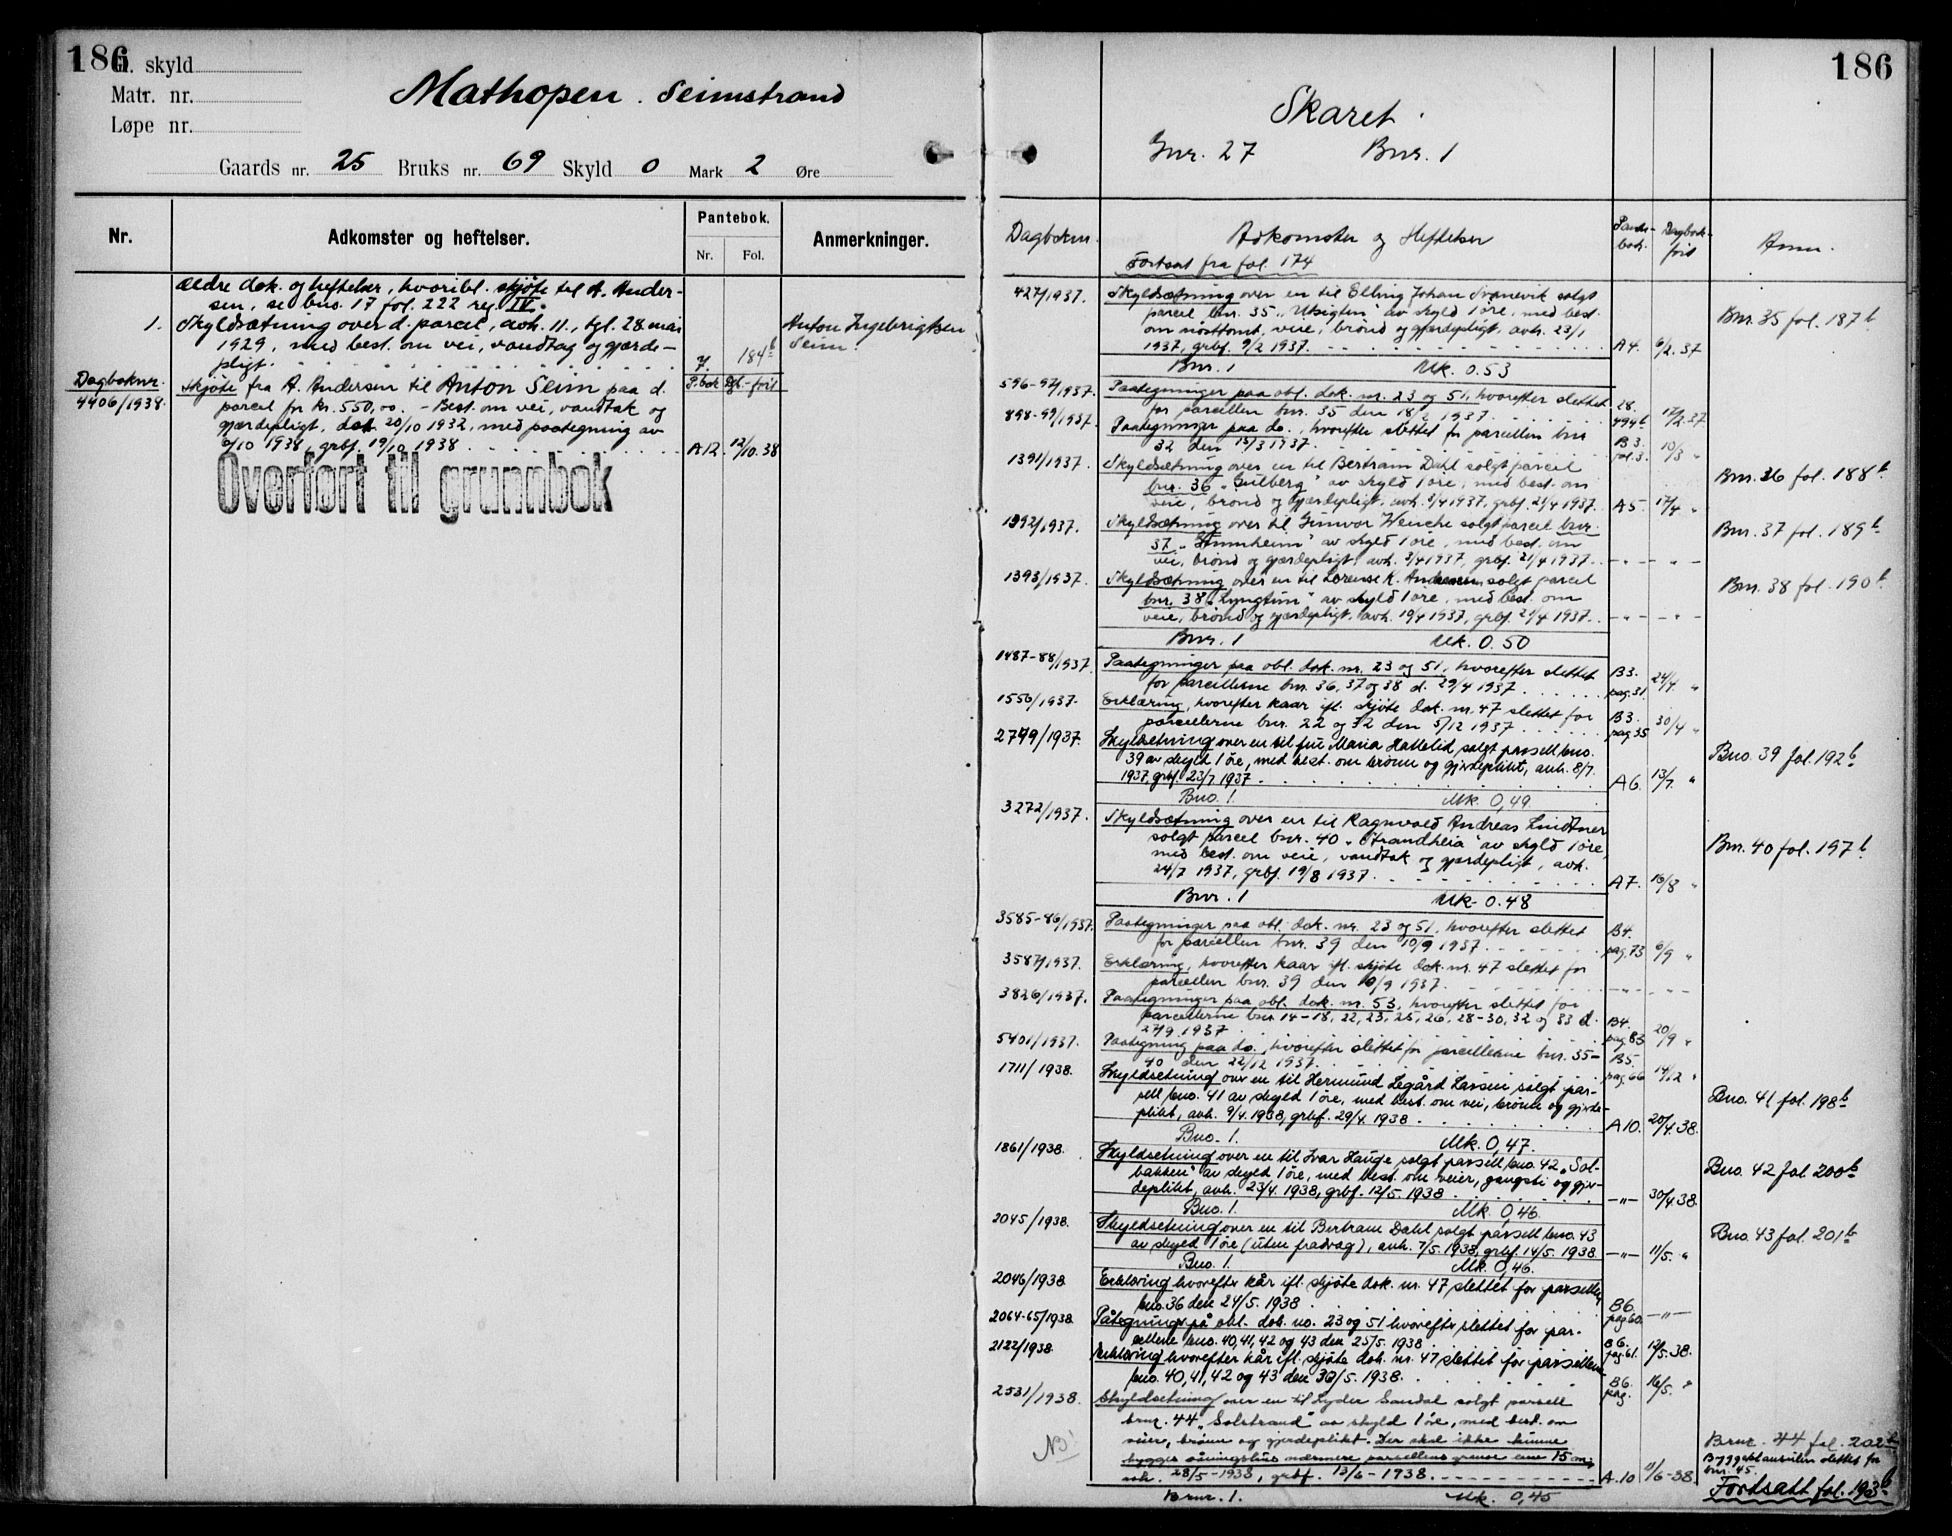 186
Gl. skyld
Matr. nr.
Løpe nr.
Mathopen. Seimstrand
Gaards nr. 25 Bruks nr. 69 Skyld 0 Mark 2 Øre
Nr.
Adkomster og heftelser.
Pantebok.
Nr. Fol.
Anmerkninger.
Ældre dok. og heftelser, hvoribl. skjøte til A. Ander-
sen, se bno. 17 fol. 222 reg. IV.
1. Skyldsætning over d. parcel, avh. 11., tgl. 28 mai Anton Ingebrigtsen
1929, med best. om vei, vandtag og gjærde- Seim.
pligt. 7. 184b
Dagboknr. Skjøte fra A. Andersen til Anton Seim paa d. P.bok Dgb.-ført
4406/1938. parcel for kr. 550,00. - Best. om vei, vandtak og
gjærdepligt, dat. 20/10 1932, med paategning av
/10 1938, grbf. 19/10 1938 A12. 12/10.38
Overført til grunnbok
186
Skaret.
Gnr. 27 Bnr. 1
Dagboknr. Adkomster og Heftelser Pante-bok. Dagbok-ført Anm.
Fortsat fra fol. 174
427/1937. Skyldsætning over en til Elling Johan Svanevik solgt
parcel bnr. 35 "Utsigten" av skyld 1 øre, med best. Bnr. 35 fol. 187b
om nösttomt, veie, brønd og gjærdepligt, avh. 23/1
1937, grbf. 9/2 1937. A4. 6/2.37
Bnr. 1 Mk. 0.53
596-97/1937. Paategninger paa obl. dok. nr. 23 og 51, hvorefter slettet
for parcellen bnr. 35 den 18/2 1937. 28. 494b 17/2.37
898-99/1937. Paategninger paa do., hvorefter slettet for parcellen bnr
32 den 15/3 1937. B3. fol.3. 10/3 "
1391/1937. Skyldsætning over en til Bertram Dahl solgt parcel
bnr. 36 "Gulberg" av skyld 1 øre, med best. om Bnr. 36 fol. 188b
veie, brønd og gjærdepligt, avh. 3/4 1937, grbf. 21/4 1937. A5. 17/4 "
1392/1937. Skyldsætning over til Gunvor Wenche solgt parcel bnr.
37 " " av skyld 1 øre, med best. om Bnr. 37 fol. 189b
vei, brønd og gjærdepligt, avh. 3/4 1937, grbf. 21/4 1937. - " - - " -
1393/1937. Skyldsætning over en til Lorense K. Andersen solgt parcel
bnr. 38 "Lyngtun" av skyld 1 øre, med best. om Bnr. 38 fol. 190b
veie, brønd og gjærdepligt, avh. 10/4 1937, grbf. 21/4 1937. - " - - " -
Bnr. 1 Mk. 0.50
1487-88/1937. Paategninger paa obl. dok. nr. 23 og 51, hvorefter slettet
for parcellerne bnr. 36, 37 og 38 d. 29/4 1937. B3. pag.31. 24/4. "
1556/1937. Erklæring, hvorefter kaar ifl. skjøte dok. nr. 47 slettet for
parcellerne bnr. 22 og 32 den 5/12 1937. B3. pag.35 30/4 "
2779/1937. Skyldsetning over en til fru Maria Hatlelid solgt parsell bno.
39 av skyld 1 øre, med best. om brønn og gjerdeplikt, avh. 8/7. Bno. 39 fol. 192b
1937, grbf. 23/7 1937. A6. 13/7. "
Bno. 1. Mk. 0,49.
3272/1937. Skyldsætning over en til Ragnvald Andreas Lindtner
solgt parcel bnr. 40 "Strandheia" av skyld 1 øre, Bnr. 40 fol. 197b
med best. om veie, vandtak og gjærdepligt, avh.
24/7 1937, grbf. 19/8 1937. A7. 16/8 "
Bnr. 1 Mk. 0.48
3585-86/1937. Paategninger paa obl. dok. nr. 23 og 51, hvorefter slettet
for parcellen bnr. 39 den 10/9 1937. B4. pag.73 6/9 "
3587/1937. Erklæring, hvorefter kaar ifl. skjøte dok. nr. 47 slettet for
parcellen bnr. 39 den 10/9 1937. - " - - " -
3826/1937. Paategninger paa obl. dok. nr. 53, hvorefter slettet for
parcellerne bnr 14-18, 22, 23, 25, 26, 28-30, 32 og 33 d.
27/9 1937 B4. pag.83 20/9 "
5401/1937. Paategning paa do., hvorefter slettet for parcellerne bnr. 35-
40 den 22/12 1937. B5. pag.66 14/12 "
1711/1938. Skyldsetning over en til Hermund Legård Larsen solgt par-
sell bno. 41 av skyld 1 øre, med best. om vei, brønn og gjerde- Bno. 41 fol. 198b
plikt, avh. 9/4. 1938, grbf. 29/4. 1938. A10. 20/4.38.
Bno. 1. Mk. 0,47.
1861/1938. Skyldsetning over en til Ivar Hauge solgt parsell bno. 42 "Sol-
bakken" av skyld 1 øre, med best. om veier, gangsti og gjer- Bno. 42 fol 200b
deplikt, avh. 23/4. 1938, grbf. 12/5. 1938. -"- 30/4.38.
Bno. 1. Mk. 0,46.
2045/1938. Skyldsetning over en til Bertram Dahl solgt parsell bno. 43
av skyld 1 øre (uten fradrag), avh. 7/5. 1938, grbf. 14/5. 1938 -"- 11/5. " Bno. 43 fol. 201b
Bno. 1. Mk. 0,46.
2046/1938. Erklæring hvorefter kår ifl. skjøte dok. nr. 47 slettet for parsellen
bno. 36 den 24/5. 1938. B6. pag60. -"-
2064-65/1938 Påtegninger på obl. dok. no. 23 og 51 hvorefter slettet for par-
sellene bno. 40, 41, 42 og 43 den 25/5. 1938. B6. pag61. 12/5.38.
2122/1938. Erklæring hvorefter kår ifl. skjøte dok. nr. 47 slettet for parsellene
bno. 40, 41, 42 og 43 den 30/5. 1938. B6. pag. 16/5. "
2531/1938. Skyldsetning over en til Lyder Sandal solgt parsell
brnr. 44 "Solstrand" av skyld 1 øre, med best. om
NB veier, brønn og gjerdeplikt. Der skal ikke kunne Brnr. 44 fol. 202b
bygges våningshus nærmere parsellens grense enn 15 m. Byggeklausulen slettet for bnr. 45.
avh. 28/5-1938, grbf. 13/6-1938. A.10 11/6-38.
Brnr. 1. Mk. 0,45 Fortsatt fol. 193b